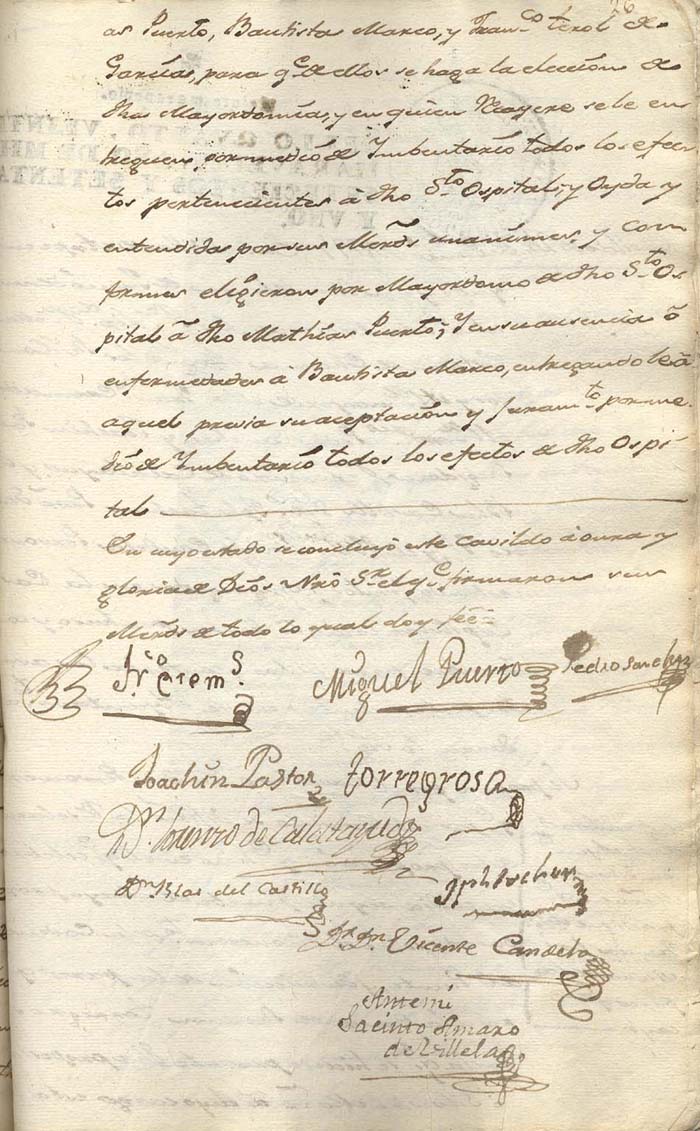 26
as Puerto, Bautista Marco, y Fran.co terol de
Garcias, para q.e de ellos se haga la eleccion de
dha Mayordomia, y en quien Recayere se le en
treguen por medio de Imbentario todos los efec
tos pertenecientes à dho S.to Ospital; y Oyda y
entendida por sus Merds unanimes, y con
formes eligieron por Mayordomo de dho S.to Os
pital à dho Mathias Puerto; Y en su ausencia ò
enfermedades à Bautista Marco, entregandole à
aquel previa su aceptacion y juram.to por me
dio de Imbentario todos los efectos de dho Ospi
tal
En cuyo estado se concluyó este cavildo à onra y
gloria de Dios Nro S.r el q.e firmaron sus
Merds de todo lo qual doy fee=
Miguel Puerto Pedro Sanchez
Joachin Pastor torregrosa
Dr. Lorenzo de Calatayud
Dn Blas del Castillo
Dr. Dn. Vicente Candela
Antemi
Jacinto Amaro
de Villela